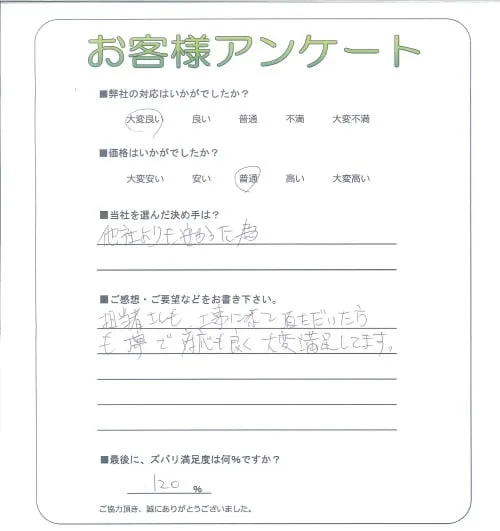 お客様アンケート
■弊社の対応はいかがでしたか？
大変良い 良い 普通 不満 大変不満
■価格はいかがでしたか？
大変安い 安い 普通 高い 大変高い
■当社を選んだ決め手は？
他社よりも安かった為
■ご感想・ご要望などをお書き下さい。
担当者さんも 工事に来て頂いた方
も 寧で 対応も良く 大変満足してます。
■最後に、ズバリ満足度は何％ですか？
120 ％
ご協力頂き、誠にありがとうございました。